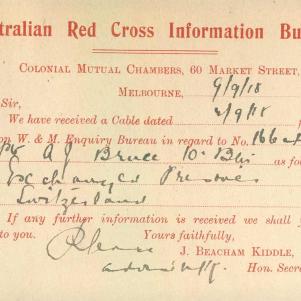 tralian Red Cross Information Bu
Colonial Mutual Chambers, 60 Market Street,
Melbourne, 9/9/18
Sir,
We have received a Cable dated 2/9/18
on W. & M. Enquiry Bureau in regard to No. 166
A J Bruce 10 Bn as fo
Exchanged Prisoner
Switzerland
If any further information is received we shall
to you. Yours faithfully,
Please J. Beacham Kiddle,
Hon. Secre